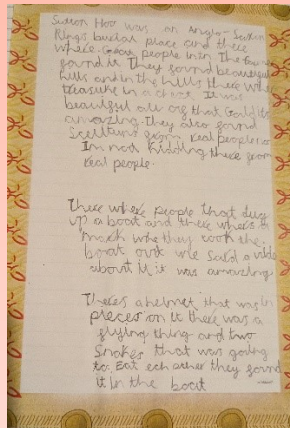 Sutton Hoo was an Anglo-Saxon
Kings burial place and there
where people in
found it They found beautiful
hills and in the hills there where
treasure in a chest. It was
beautiful all of that Gold its
amazing They also found
from real people no
Im not kidding there from
real people.
There where people that dug
up a boat and there where a
mark whe they took the
boat out we said a
about it it was amazing
Theres a helmet that was in
pieces on it there was a
flying thing and two
snakes that was going
to Eat ech other they found
it in the boat